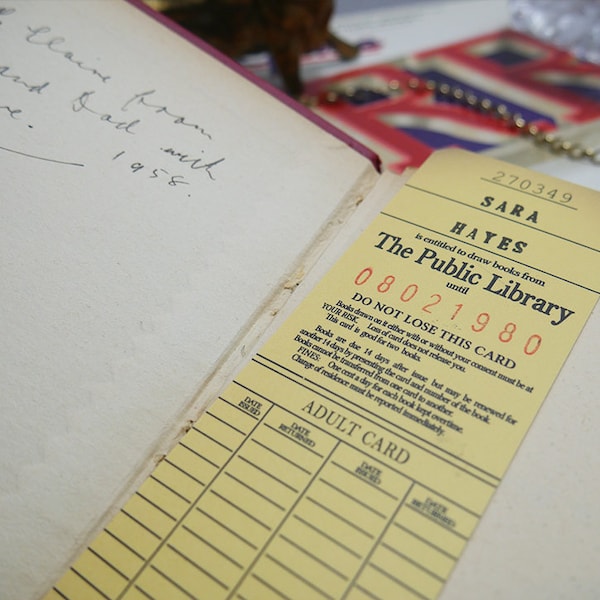 Claire from
and Dad with
1958.
270349
SARA
HAYES
is entitled to draw books from
The Public Library
until
08021980
DO NOT LOSE THIS CARD
Books drawn on it either with or without your consent must be at
YOUR RISK. Loss of card does not release you.
This card is good for two books.
Books are due 14 days after issue but may be renewed for
another 14 days by presenting the card and number of the book.
Books cannot be transferred from one card to another.
FINES: One cent a day for each book kept overtime.
Change of residence must be reported immediately.
ADULT CARD
DATE ISSUED DATE RETURNED DATE ISSUED DATE RETURNED